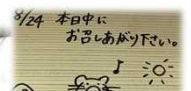 8/24 本日中に
お召しあがり下さい。